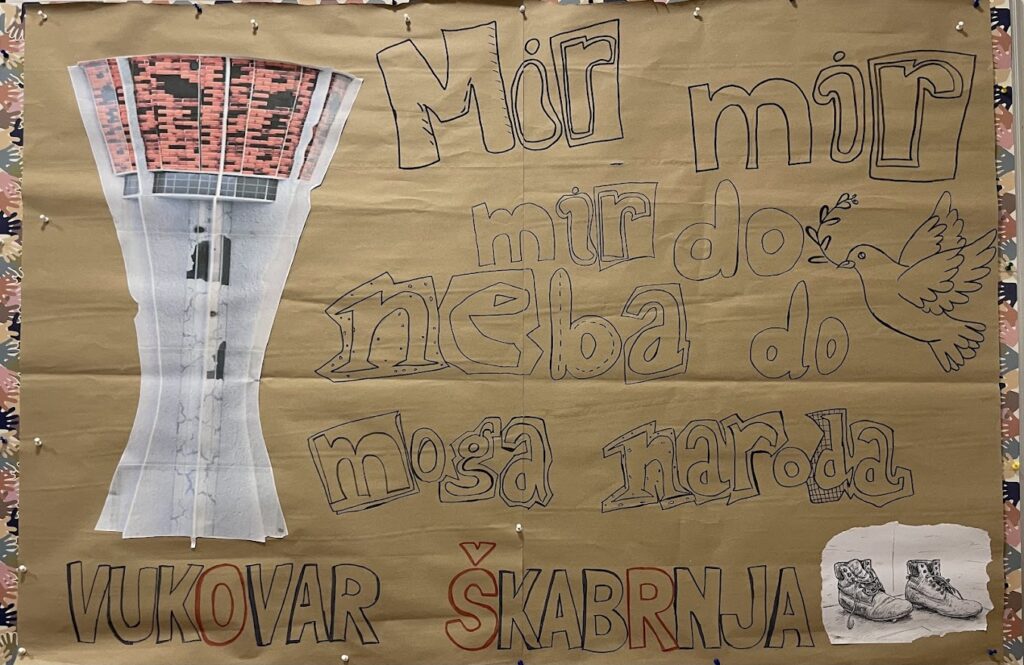 Mir mir
mir do
neba do
moga naroda
VUKOVAR ŠKABRNJA